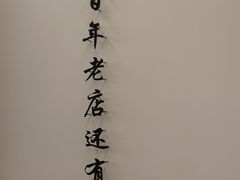 百年老店还有